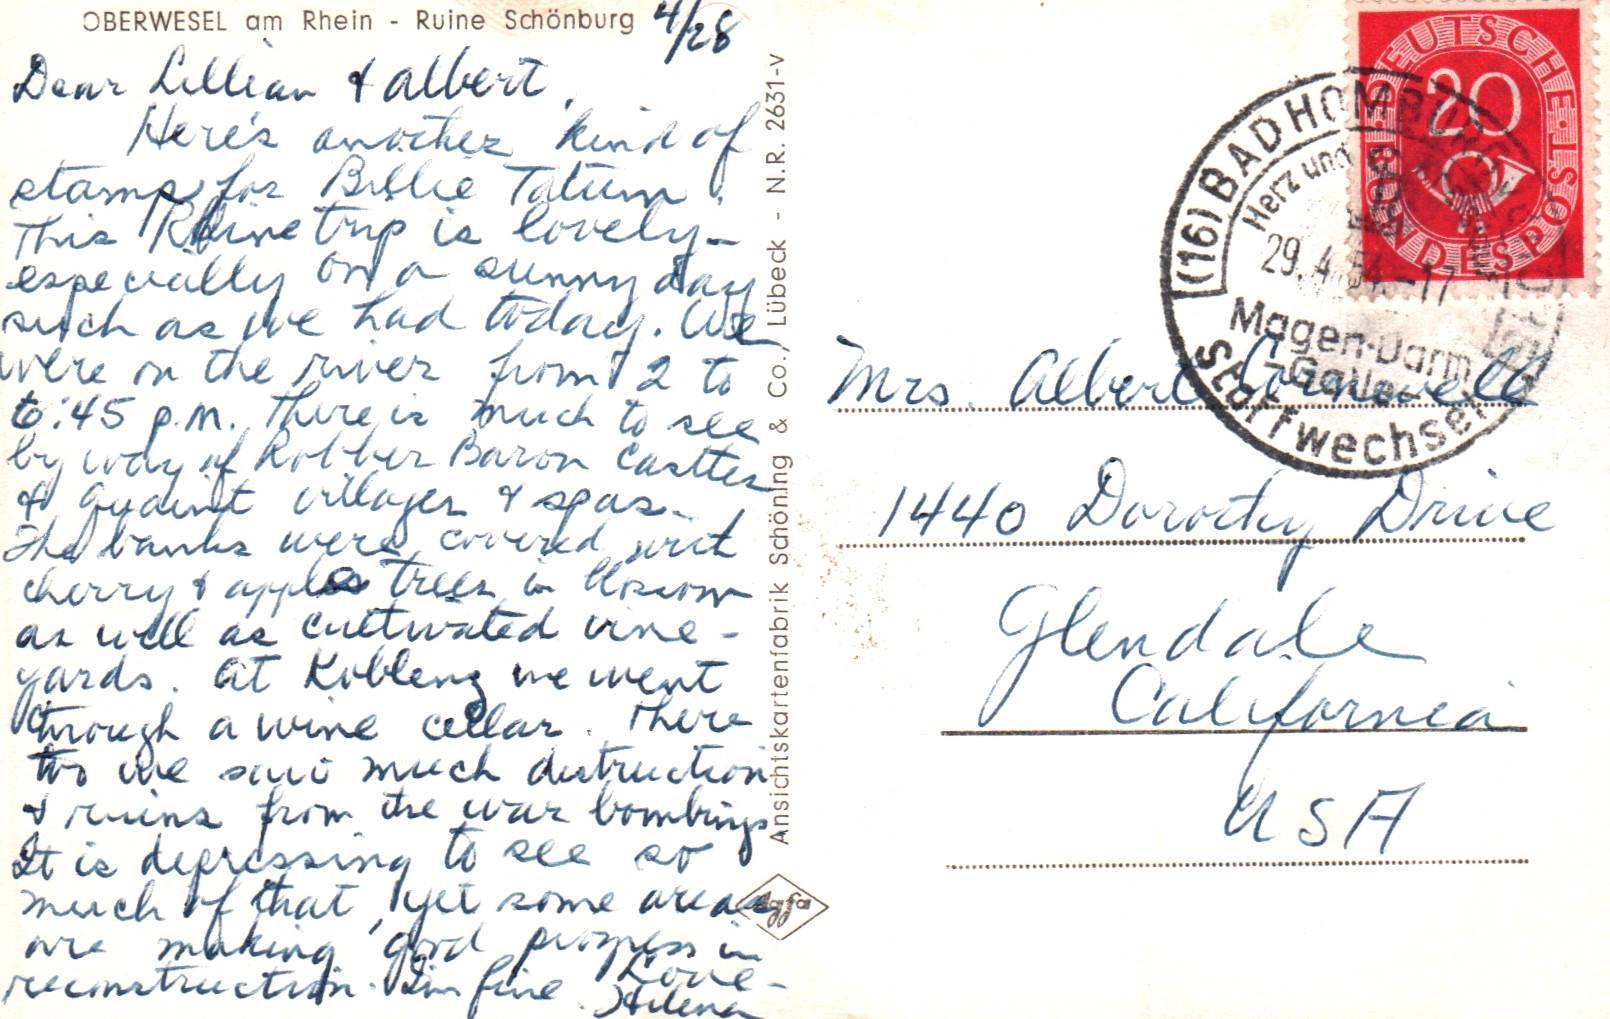 OBERWESEL am Rhein - Ruine Schönburg
4/28
Dear Lillian & Albert,
Here's another kind of
stamp for Billie Tatum.
This Rhine trip is lovely -
especially on a sunny day
such as we had today. We
were on the river from 2 to
6:45 p.m. There is much to see
by way of Robber Baron Castles
& quaint villages & spas.
The banks were covered with
cherry & apple trees in blossom
as well as cultivated vine-
yards. At Koblenz we went
through a wine cellar. There
too we saw much distruction
& ruins from the war bombings
It is depressing to see so
much of that, yet some areas
are making good progress in
reconstruction. I'm fine. Love -
Helena
Ansichtskartenfabrik Schöning & Co., Lübeck - N.R. 2631-v
Agfa
DEUTSCHE BUNDESPOST
20
(16) BAD HOMBURG
Herz und
29.4.54.-17
Magen-Darm
Galle
Stoffwechsel
Mrs. Albert Cornwell
1440 Dorothy Drive
Glendale
California
USA